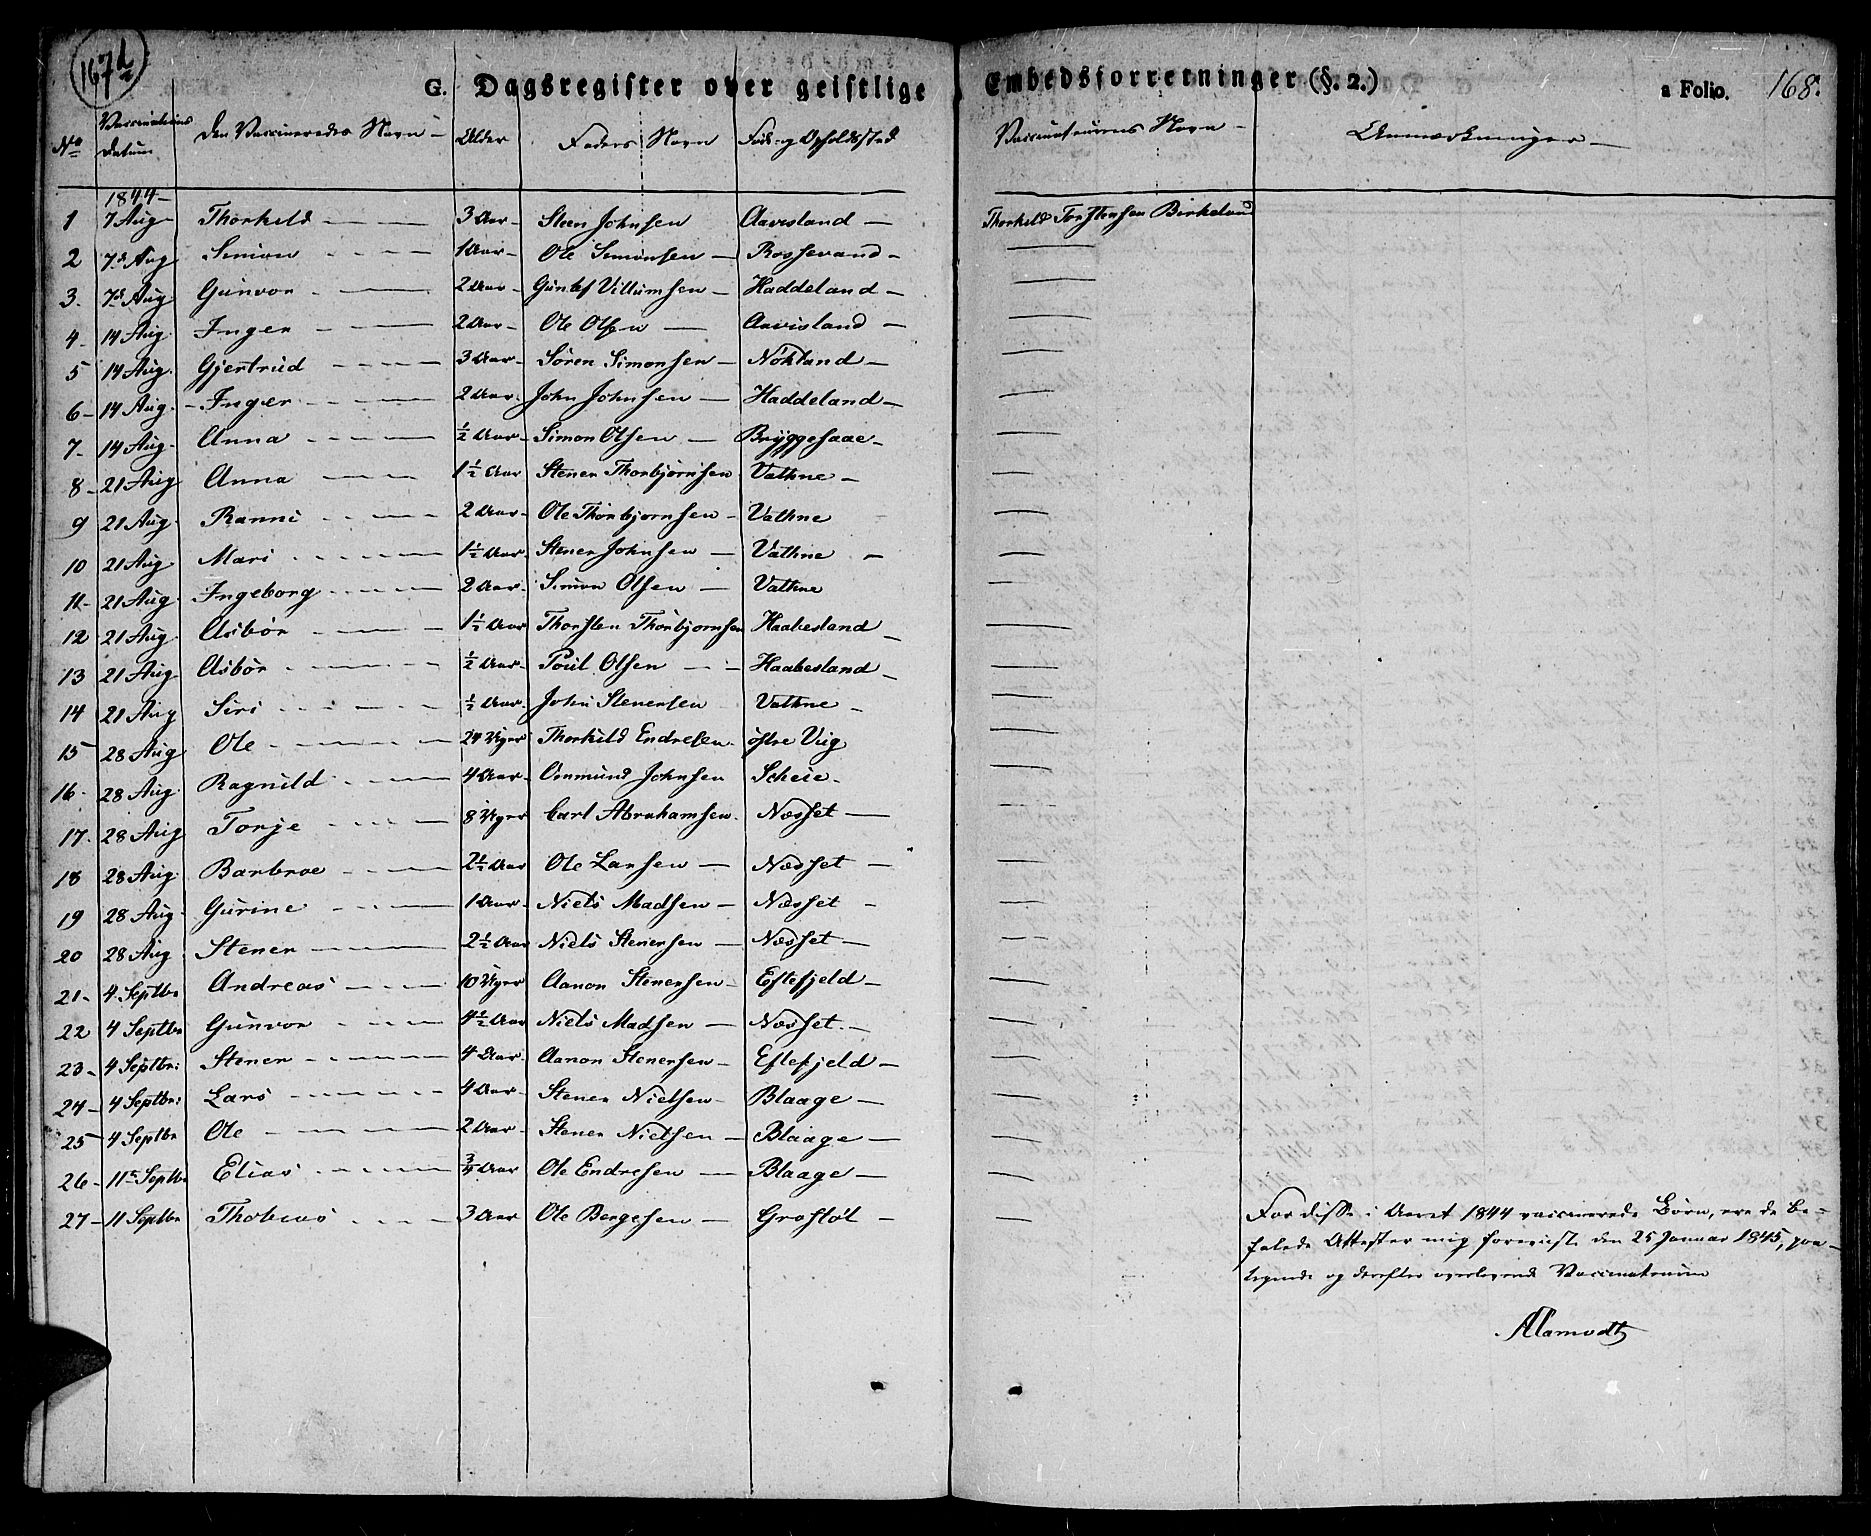 167d
G. Dagsregister over geistlige Embedsforretninger (§. 2.) a Folio. 168.
No Vaccinations Datum Den Vaccineredes Navn Alder Faders Navn Føde- og Opholdssted Vaccinateurens Navn Anmærkninger
1844
1 7 Aug Thorkild 3 Aar Steen Johnsen Aavesland Thorkild Torstensen Birkeland
2 7d Aug Simon 1 Aar Ole Simonsen Rossevand
3. 7d Aug Gunvor 2 Aar Guntef Villumsen Haddeland
4. 14 Aug. Inger 2 Aar Ole Olsen Aavisland
5 14 Aug. Gjertrud 3 Aar Søren Simonsen Nökland
6 14 Aug. Inger 2 Aar John Johnsen Haddeland
7. 14 Aug. Anna ½ Aar Simon Olsen Bryggesaae
8 21 Aug Anna 1½ Aar Stener Thorbjørnsen Vathne
9 21 Aug. Ranni 2 Aar Ole Thorbjørnsen Vathne
10 21 Aug Mari 1½ Aar Stener Johnsen Vathne
11 21 Aug. Ingeborg 2 Aar Simon Olsen Vathne
12 21 Aug Asbør 1½ Aar Thorsten Thorbjornsen Haabesland
13 21 Aug Asbør ½ Aar Poul Olsen Haabesland
14 21 Aug Siri ½ Aar John Stenersen Vathne
15 28 Aug Ole 24 Uger Thorkild Endresen östre Vug
16. 28 Aug. Ragnild 4 Aar Ommund Johnsen Scheie
17. 28 Aug Torje 8 Uger Carl Abrahamsen Næsset
18 28 Aug. Barbroe 2½ Aar Ole Larsen Næsset
19 28 Aug. Gurine 1 Aar Niels Madsen Næsset
20 28 Aug Stener 2½ Aar Niels Stenersen Næsset
21 4 Septbr Andreas 10 Uger Aanon Stenersen Eftefjeld
22 4 Septbr Gunvor 4½ Aar Niels Madsen Næsset
23 4 Septbr: Stener 4 Aar Aanon Stenersen Eftefjeld
24 4 Septbr: Lars 4 Aar Stener Nielsen Blaage
25 4 Septbr Ole 2 Aar Stener Nielsen Blaage
26 11te Septbr Elias ¾ Aar Ole Endresen Blaage
27 11 Septbr Thobias 3 Aar Ole Bergesen Grostøl
For disse i Aaret 1844 vaccinerede Børn, ere de be-
falede Attester mig foreviste den 25 Januar 1845, paa-
tegnede og derefter overleverede Vaccinateuren